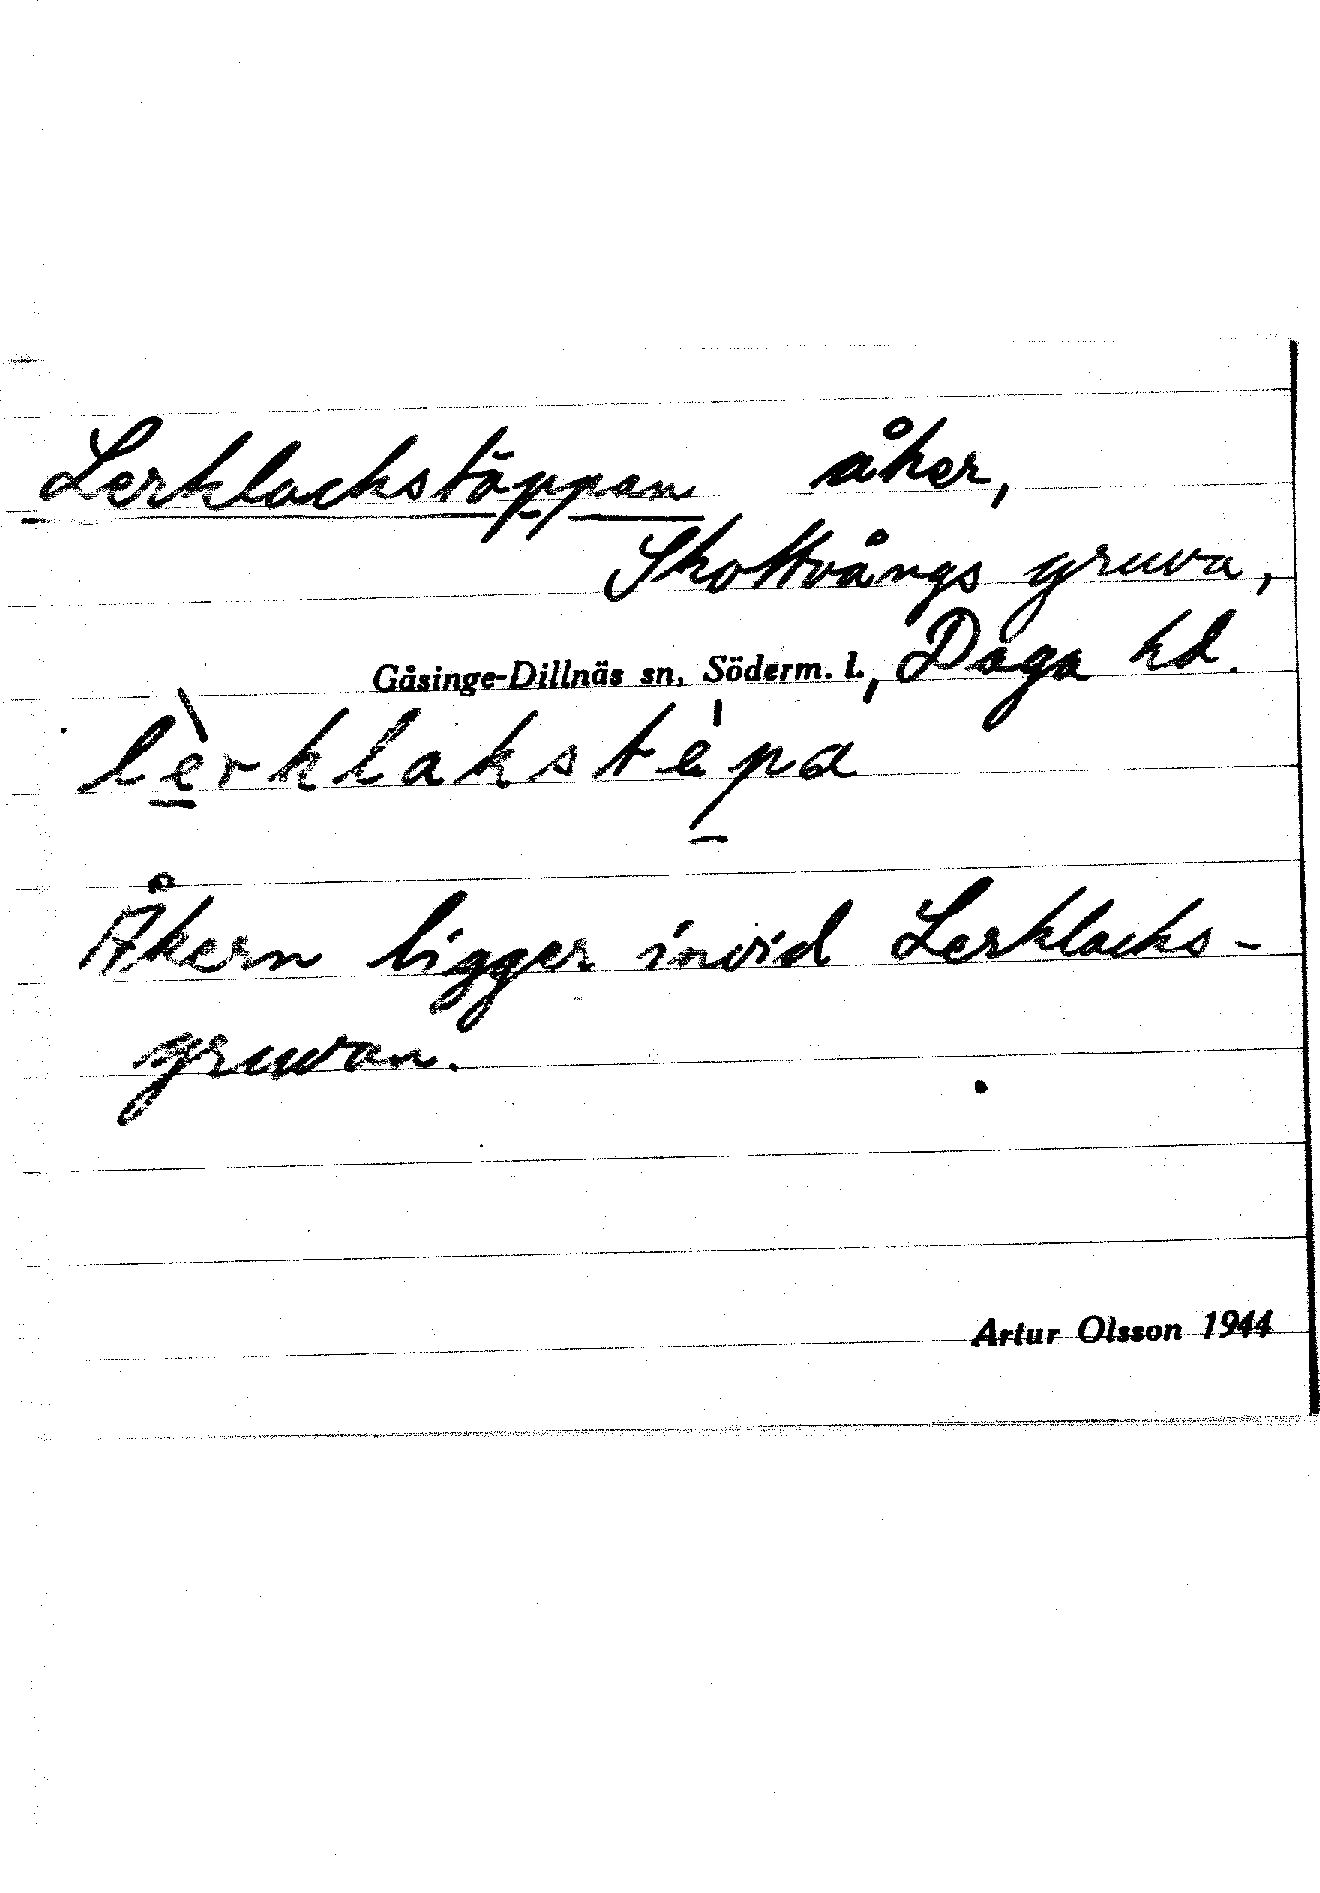 Lerklackstäppan åker,
Skottvångs gruva,
Gåsinge-Dillnäs sn, Söderm. l., Daga hd.
lèrklakstèpa
Åkern ligger invid Lerklacks-
gruvan.
Artur Olsson 1944